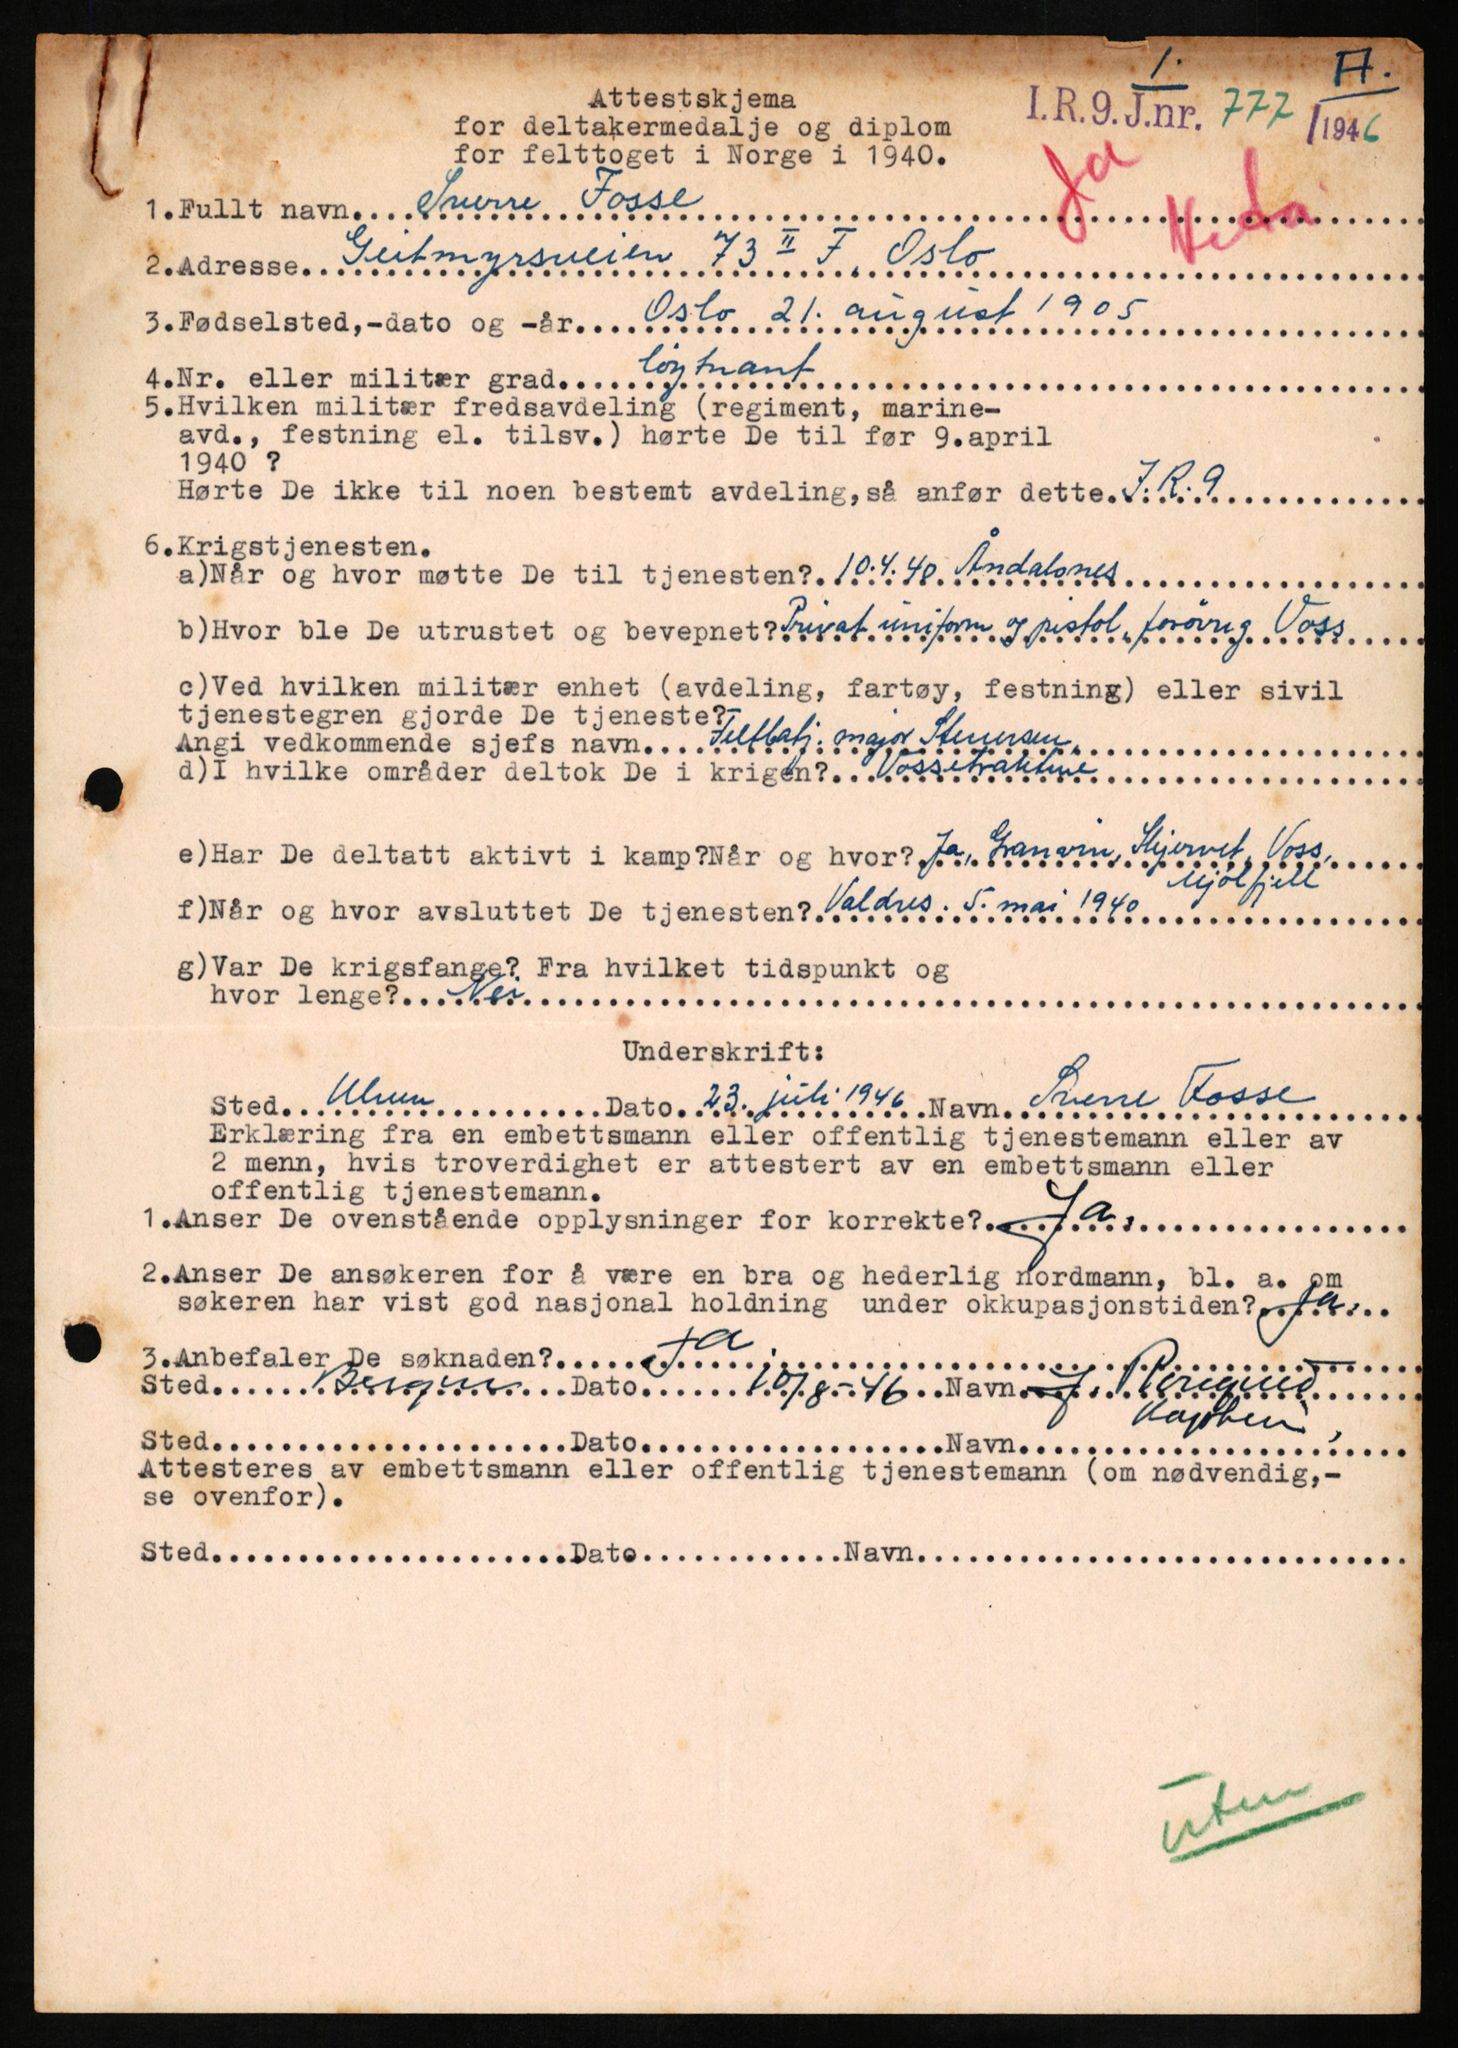 1.
A.
Attestskjema
for deltakermedalje og diplom
for felttoget i Norge i 1940.
I.R.9. J.nr. 777 /1946
Ja
1.Fullt navn....Sverre Fosse
2.Adresse...Geitmyrsveien 73 II F, Oslo
3.Fødselsted,-dato og -år....Oslo 21. august 1905
4.Nr. eller militær grad.....löytnant
5.Hvilken militær fredsavdeling (regiment, marine-
avd., festning el. tilsv.) hørte De til før 9.april
1940 ?
Hørte De ikke til noen bestemt avdeling,så anfør dette. J.R.9
6.Krigstjenesten.
a)Når og hvor møtte De til tjenesten?. 10.4.40 Åndalsnes
b)Hvor ble De utrustet og bevepnet? Privat uniform og pistol, forövrig Voss
c)Ved hvilken militær enhet (avdeling, fartøy, festning) eller sivil
tjenestegren gjorde De tjeneste?
Angi vedkommende sjefs navn.... Feltbatj. major Stenersen.
d)I hvilke områder deltok De i krigen?... Vossetraktene
e)Har De deltatt aktivt i kamp?Når og hvor?. Ja, Granvin, Skjervet, Voss,
Mjölfjell
f)Når og hvor avsluttet De tjenesten?. Valdres. 5. mai 1940
g)Var De krigsfange? Fra hvilket tidspunkt og
hvor lenge?... Nei
Underskrift:
Sted. Ulven Dato. 23. juli 1946 Navn Sverre Fosse
Erklæring fra en embettsmann eller offentlig tjenestemann eller av
2 menn, hvis troverdighet er attestert av en embettsmann eller
offentlig tjenestemann.
1.Anser De ovenstående opplysninger for korrekte?. Ja.
2.Anser De ansøkeren for å være en bra og hederlig nordmann, bl. a. om
søkeren har vist god nasjonal holdning under okkupasjonstiden?. Ja.
3.Anbefaler De søknaden?..... Ja.
Sted. Bergen Dato 10/8-46 Navn
Kaptein
Sted.....................Dato..................Navn.......................
Attesteres av embettsmann eller offentlig tjenestemann (om nødvendig,-
se ovenfor).
Sted.....................Dato............Navn.............................
uten